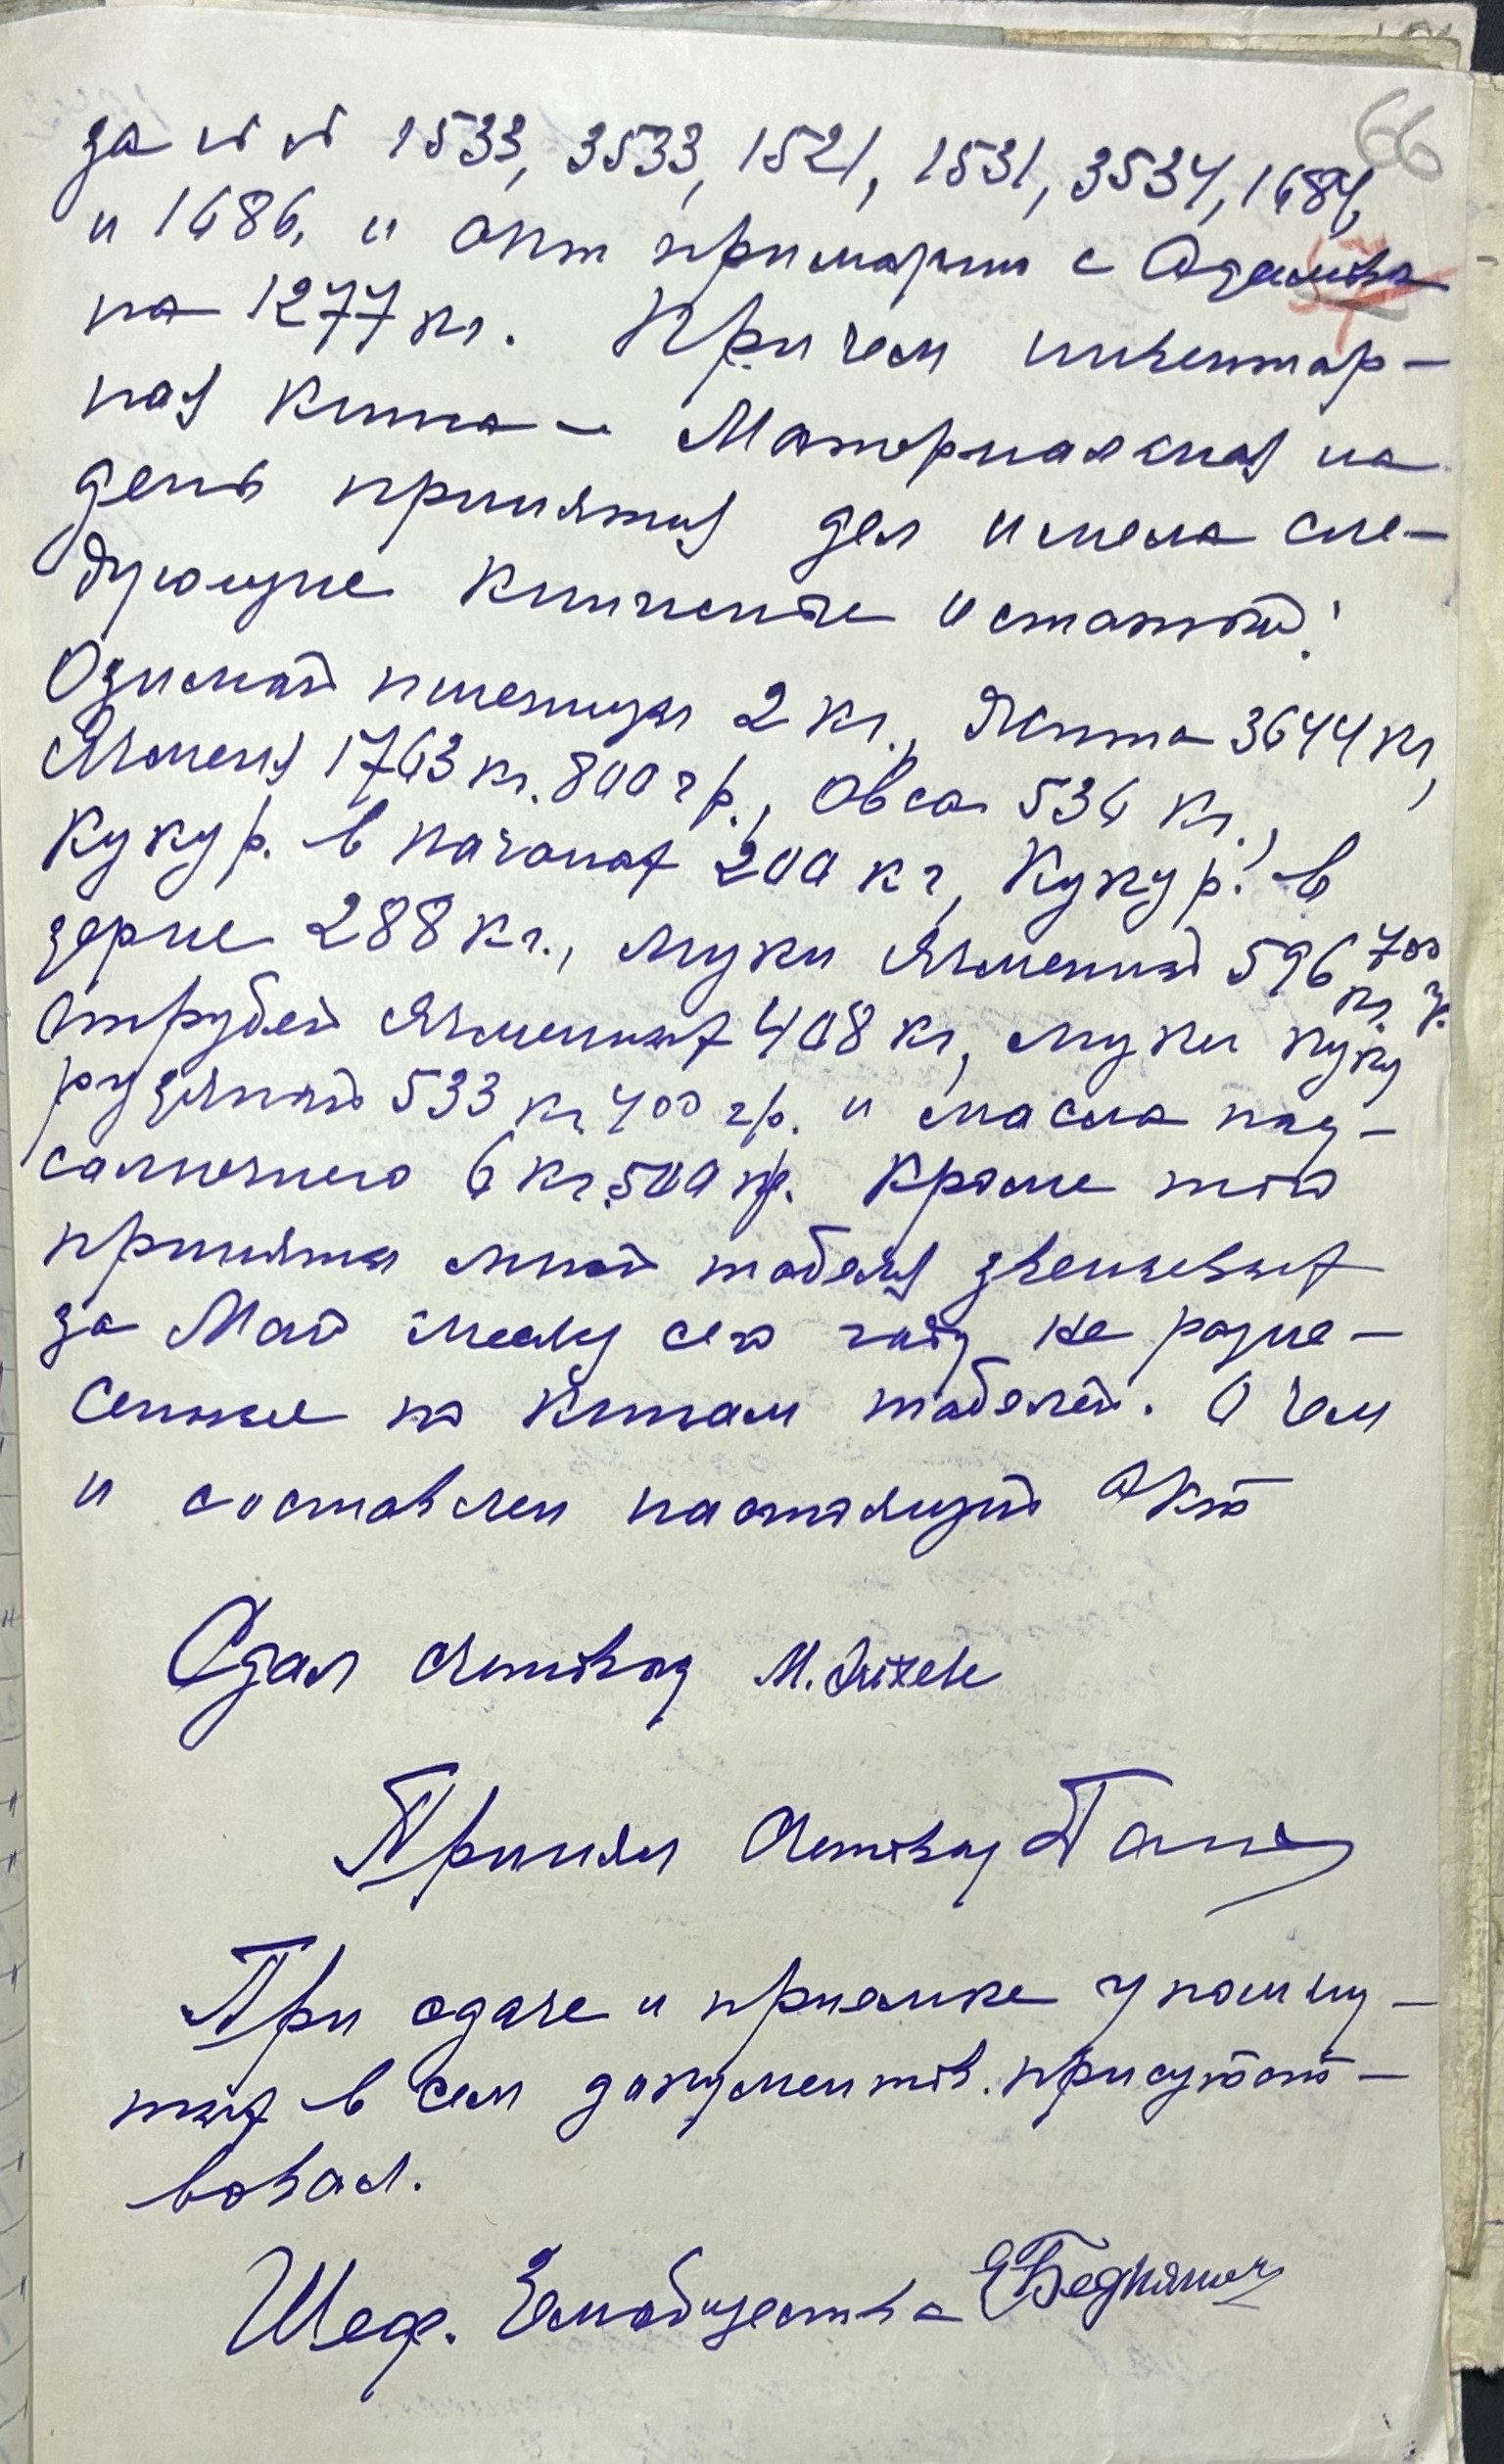 66
за №№ 1533, 3533, 1521, 1531, 3534, 1684,
и 1686, и акт примарии с Адамовка
на 1277 кг. Причем инвентар-
ная книга – Материальная на
день принятия дел имела сле-
дующие книжные остатки:
Озимой пшеницы 2 кг., Жита 3644 кг,
Ячменя 1763 кг. 800 гр., Овса 536 кг.,
Кукур. в початках 200 кг, Кукур. в
зерне 288 кг., муки ячменной 596 кг 700 г.
Отрубей ячменных 408 кг, муки куку
рузяной 533 кг 400 гр. и масла под-
солнечного 6 кг. 500 гр. Кроме того
приняты мной табеля звеньевых
за Май месяц сего года не разне-
сенные по книгам табелей. О чем
и составлен настоящий Акт
Сдал Счетовод М.
Принял Счетовод
При сдаче и приемке упомяну-
тых в сем документов присутст-
вовал.
Шеф. Земобщества